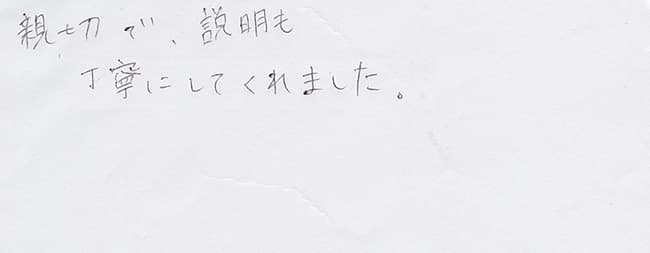 親切で、説明も
丁寧にしてくれました。